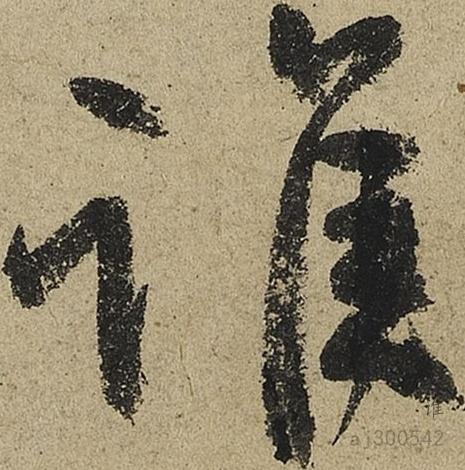 誰
誰
aj300542